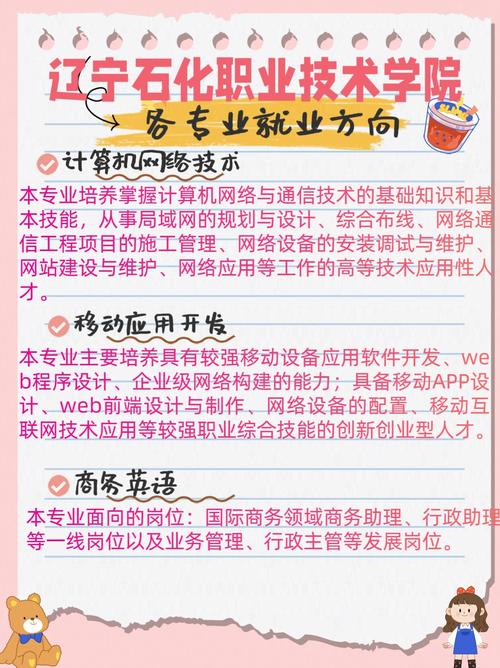 辽宁石化职业技术学院
各专业就业方向
计算机网络技术
本专业培养掌握计算机网络与通信技术的基础知识和基
本技能，从事局域网的规划与设计、综合布线、网络通
信工程项目的施工管理、网络设备的安装调试与维护、
网站建设与维护、网络应用等工作的高等技术应用性人
才。
移动应用开发
本专业主要培养具有较强移动设备应用软件开发、we
b程序设计、企业级网络构建的能力；具备移动APP设
计、web前端设计与制作、网络设备的配置、移动互
联网技术应用等较强职业综合技能的创新创业型人才。
商务英语
本专业面向的岗位：国际商务领域商务助理、行政助理
等一线岗位以及业务管理、行政主管等发展岗位。